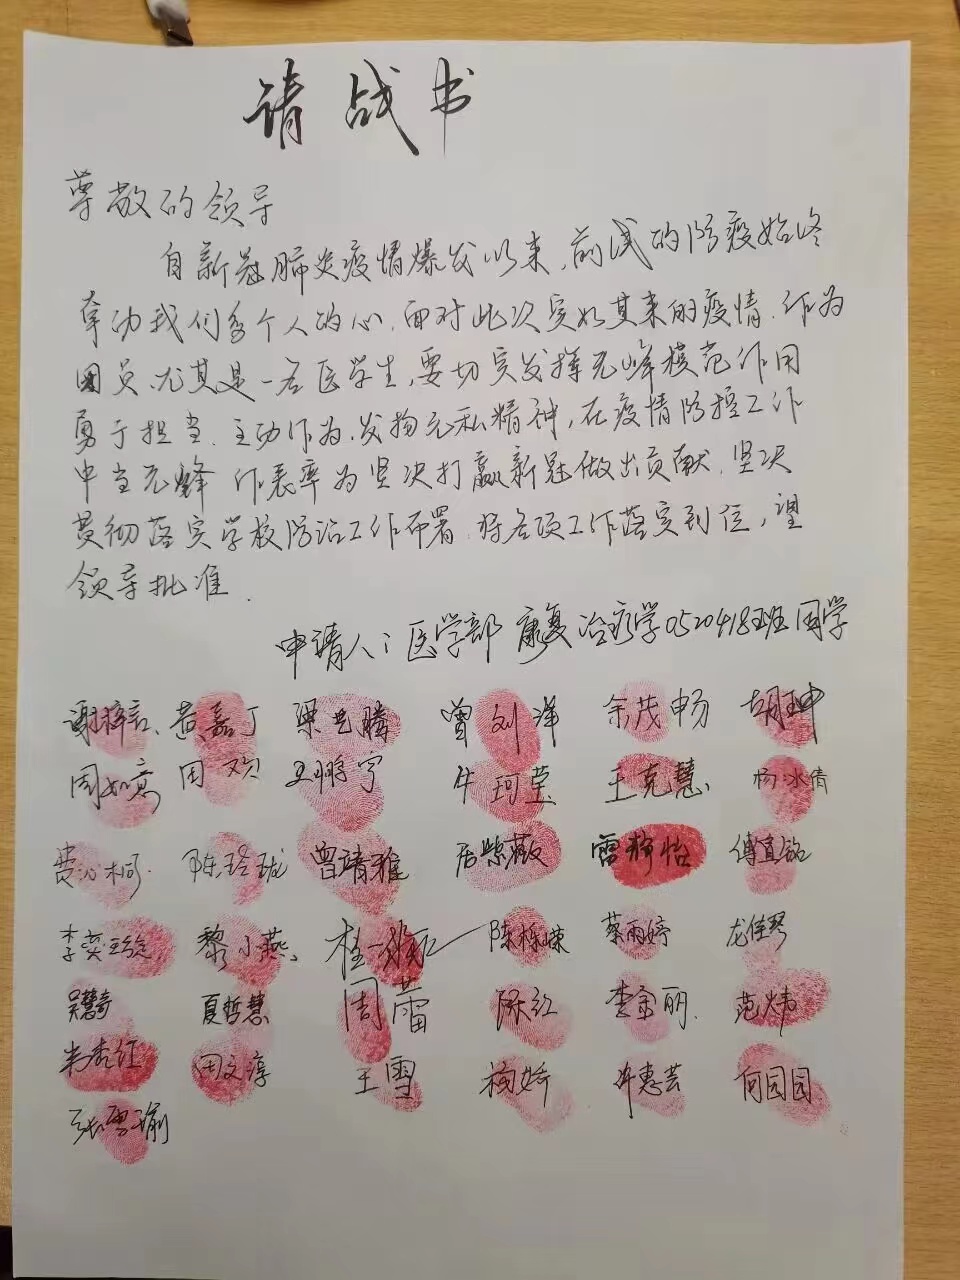 请战书
尊敬的领导
自新冠肺炎疫情爆发以来，前线的防疫始终
牵动我们每个人的心，面对此次突如其来的疫情，作为
团员、尤其是一名医学生，要切实发挥先峰模范作用
勇于担当、主动作为、发扬无私精神，在疫情防控工作
中当先蜂 作表率为坚决打赢新冠做出贡献，坚决
贯彻落实学校防治工作布署，将各项工作落实到位，望
领导批准．
申请人：医学部 康复治疗学0520418班同学
谢梓言、黄嘉丁 梁艺腾 曾刘洋 余茂畅 胡珅
周如意 田双 王鹏宁 牛珂莹 王克慧 杨冰倩
陈玲珑 曾靖雅 居紫薇 雷静怡 傅宣铭
黎小燕 陈栎嵘 蔡雨婷 龙佳琴
吴慧奇 夏哲慧 周蕾 陈红 李金丽 范炜
米秀红 田文淳 王雪 杨娇 许惠芸 何园园
张雪瑜